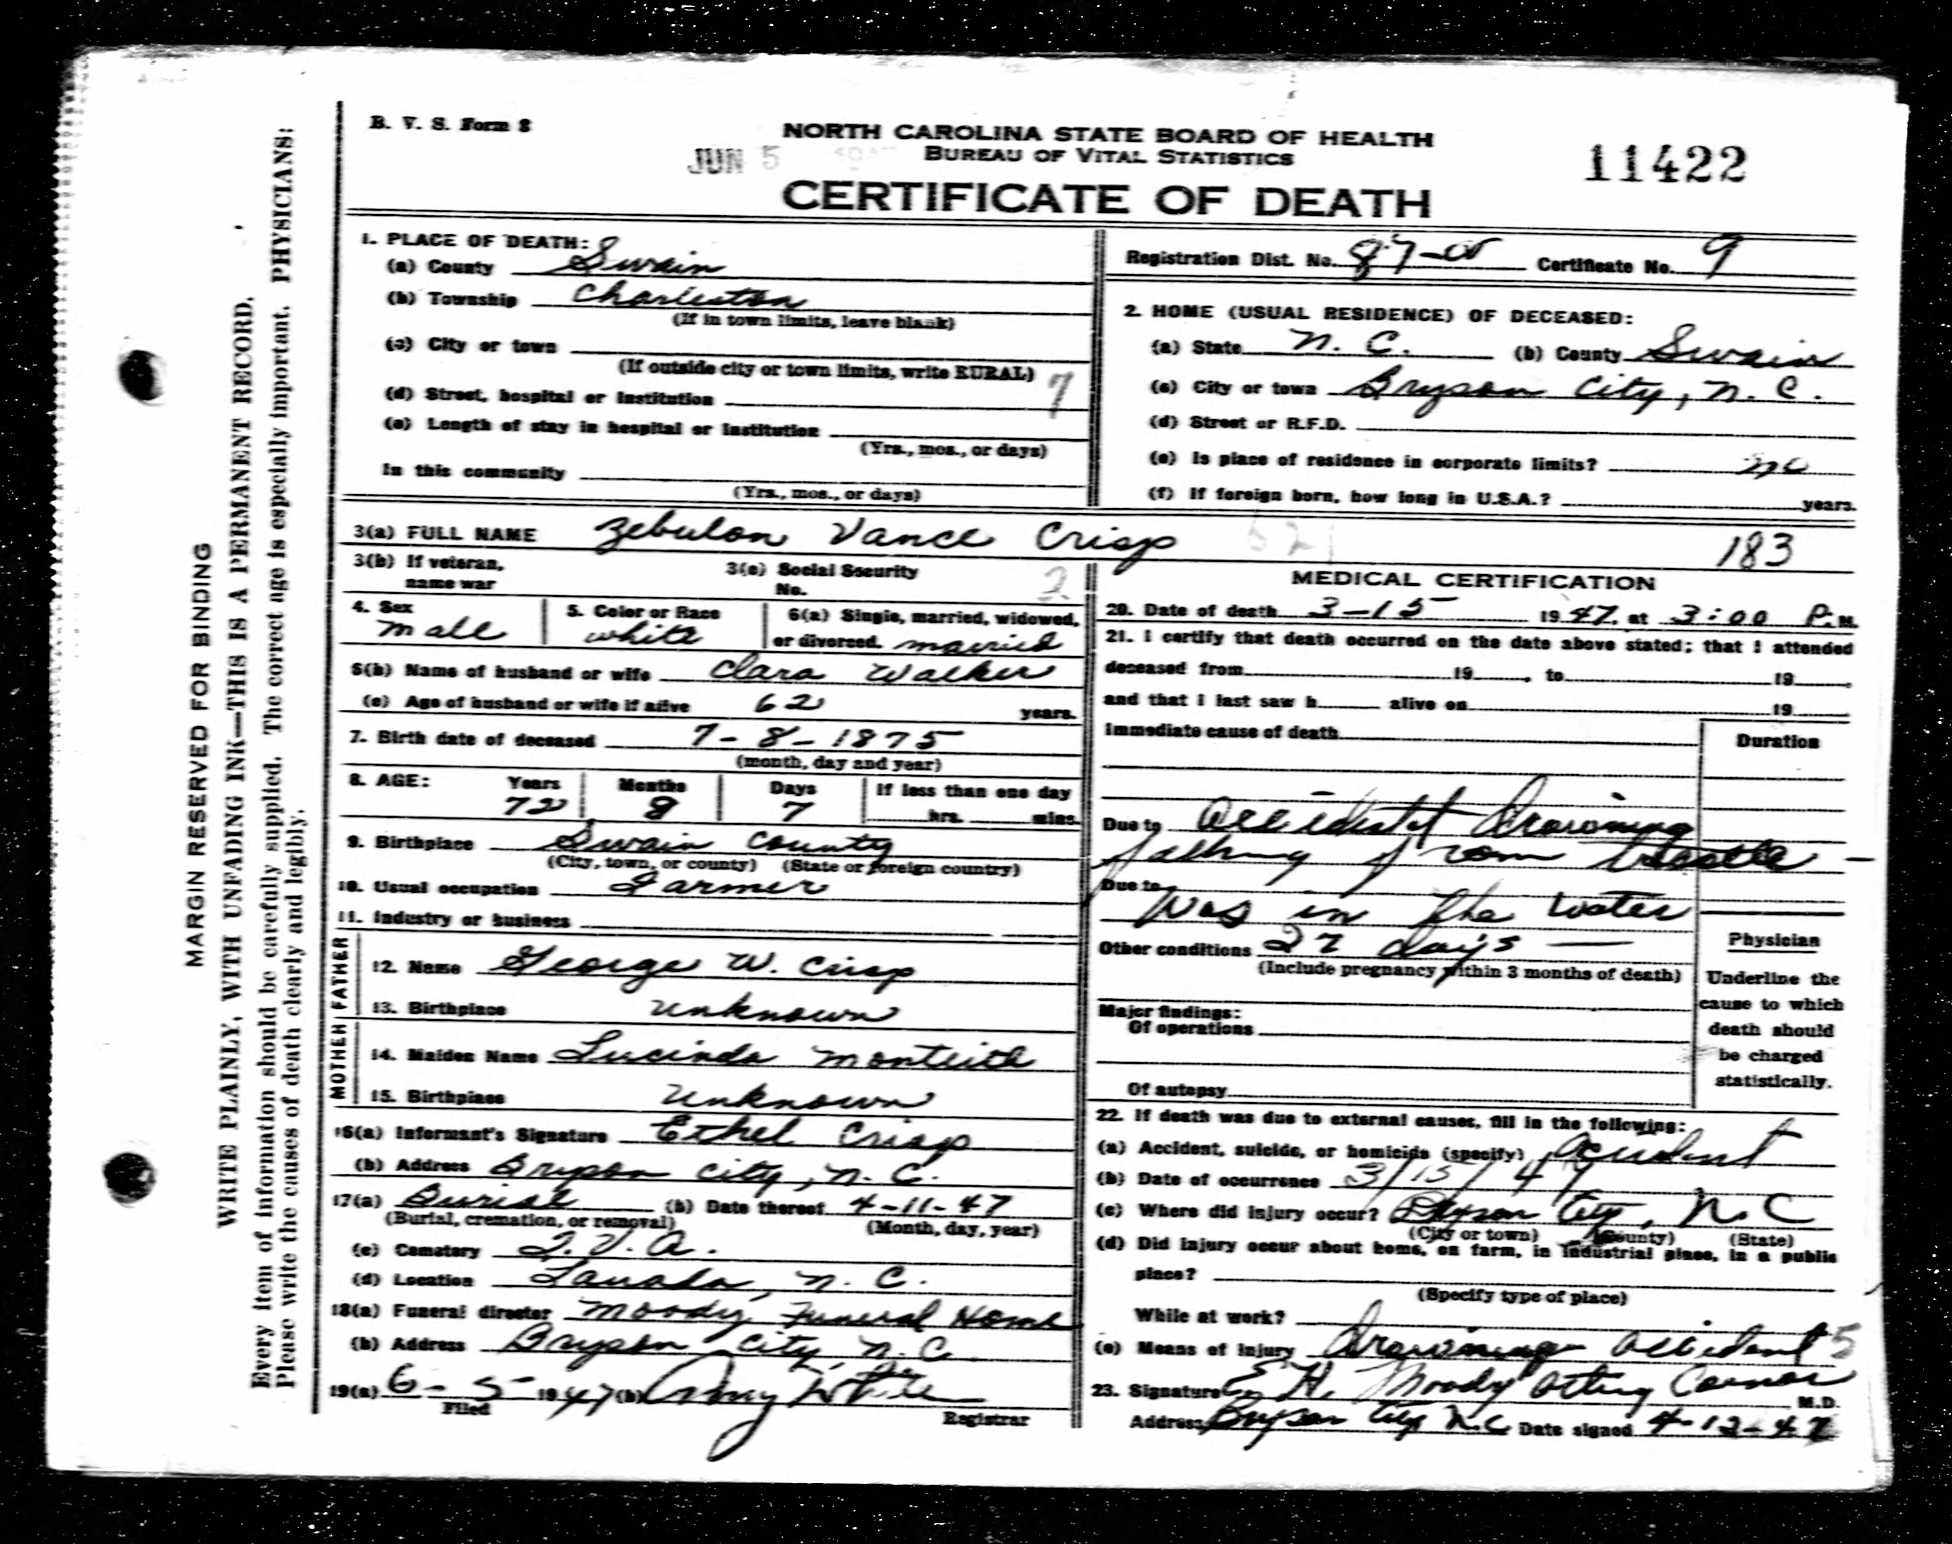 B. V. S. Form 8
NORTH CAROLINA STATE BOARD OF HEALTH
BUREAU OF VITAL STATISTICS
JUN 5
11422
CERTIFICATE OF DEATH
MARGIN RESERVED FOR BINDING
WRITE PLAINLY, WITH UNFADING INK—THIS IS A PERMANENT RECORD.
Every item of information should be carefully supplied. The correct age is especially important. PHYSICIANS:
Please write the causes of death clearly and legibly.
1. PLACE OF DEATH:
(a) County Swain
(b) Township Charleston
(If in town limits, leave blank)
(c) City or town
(If outside city or town limits, write RURAL)
(d) Street, hospital or institution 7
(e) Length of stay in hospital or institution
(Yrs., mos., or days)
In this community
(Yrs., mos., or days)
Registration Dist. No. 87-00 Certificate No. 9
2. HOME (USUAL RESIDENCE) OF DECEASED:
(a) State N. C. (b) County Swain
(c) City or town Bryson City, N. C.
(d) Street or R.F.D.
(e) Is place of residence in corporate limits? no
(f) If foreign born, how long in U.S.A.? years.
3(a) FULL NAME Zebulon Vance Crisp 183
3(b) If veteran,
name war
3(c) Social Security
No. 2
4. Sex
Male
5. Color or Race
white
6(a) Single, married, widowed,
or divorced. married
6(b) Name of husband or wife Clara Walker
(c) Age of husband or wife if alive 62 years.
7. Birth date of deceased 7-8-1875
(month, day and year)
8. AGE: Years Months Days If less than one day
72 8 7 hrs. mins.
9. Birthplace Swain County
(City, town, or county) (State or foreign country)
10. Usual occupation Farmer
11. Industry or business
FATHER
12. Name George W. Crisp
13. Birthplace unknown
MOTHER
14. Maiden Name Lucinda Monteith
15. Birthplace unknown
16(a) Informant's Signature Ethel Crisp
(b) Address Bryson City, N. C.
17(a) Burial (b) Date thereof 4-11-47
(Burial, cremation, or removal) (Month, day, year)
(c) Cemetery T. V. A.
(d) Location Lauada, N. C.
18(a) Funeral director Moody Funeral Home
(b) Address Bryson City, N. C.
19(a) 6-5 1947 (b) White
Filed Registrar
MEDICAL CERTIFICATION
20. Date of death 3-15 1947. at 3:00 P.M.
21. I certify that death occurred on the date above stated; that I attended
deceased from 19 , to 19 .
and that I last saw h alive on 19
Immediate cause of death
Duration
Due to Accidental Drowning
falling from trestle —
Due to
Was in the water
Other conditions 27 days —
(Include pregnancy within 3 months of death)
Major findings:
Of operations
Of autopsy
Physician
Underline the
cause to which
death should
be charged
statistically.
22. If death was due to external causes, fill in the following:
(a) Accident, suicide, or homicide (specify) Accident
(b) Date of occurrence 3/15/47
(c) Where did injury occur? Bryson City, N. C
(City or town) (County) (State)
(d) Did injury occur about home, on farm, in industrial place, in a public
place?
(Specify type of place)
While at work?
(e) Means of injury Drowning accident 5
23. Signature E H. Moody Acting Coroner M.D.
Address Bryson City N.C Date signed 4-12-47